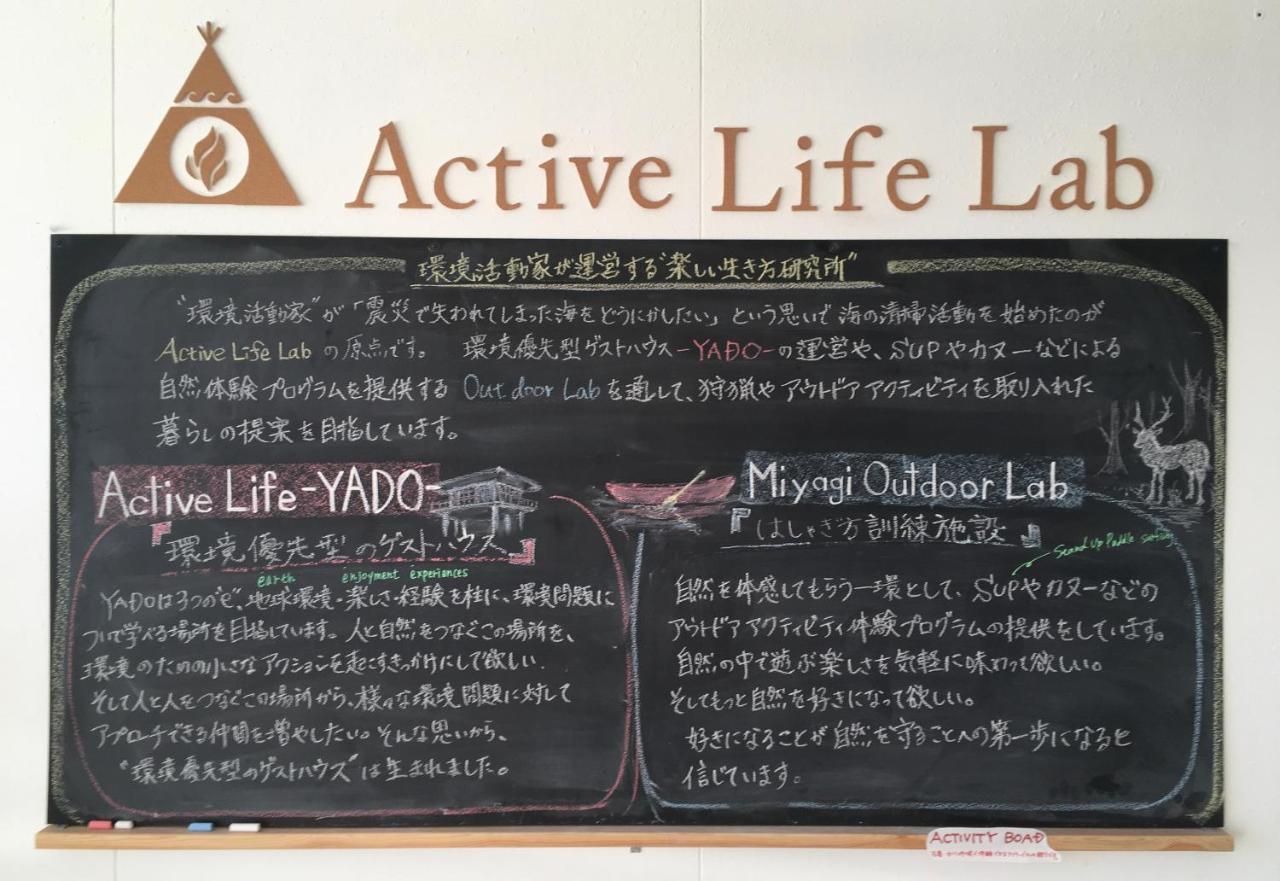 Active Life Lab
環境活動家が運営する"楽しい生き方研究所"
"環境活動家"が「震災で失われてしまった海をどうにかしたい」という思いで海の清掃活動を始めたのが
Active Life Labの原点です。 環境優先型ゲストハウス-YADO-の運営や、SUPやカヌーなどによる
自然体験プログラムを提供する Outdoor Labを通して、狩猟やアウトドアアクティビティを取り入れた
暮らしの提案を目指しています。
Active Life-YADO-
『環境優先型のゲストハウス』
earth enjoyment experiences
YADOは3つの"e"、地球環境・楽しさ・経験を柱に、環境問題に
ついて学べる場所を目指しています。人と自然をつなぐこの場所を、
環境のための小さなアクションを起こすきっかけにして欲しい.
そして人と人をつなぐこの場所から、様々な環境問題に対して
アプローチできる仲間を増やしたい。そんな思いから、
"環境優先型のゲストハウス"は生まれました。
Miyagi Outdoor Lab
『はしゃぎ方訓練施設』
Stand Up Paddle surfing
自然を体感してもらう一環として、SUPやカヌーなどの
アウトドアアクティビティ体験プログラムの提供をしています。
自然の中で遊ぶ楽しさを気軽に味わって欲しい。
そしてもっと自然を好きになって欲しい。
好きになることが自然を守ることへの第一歩になると
信じています。
ACTIVITY BOAD